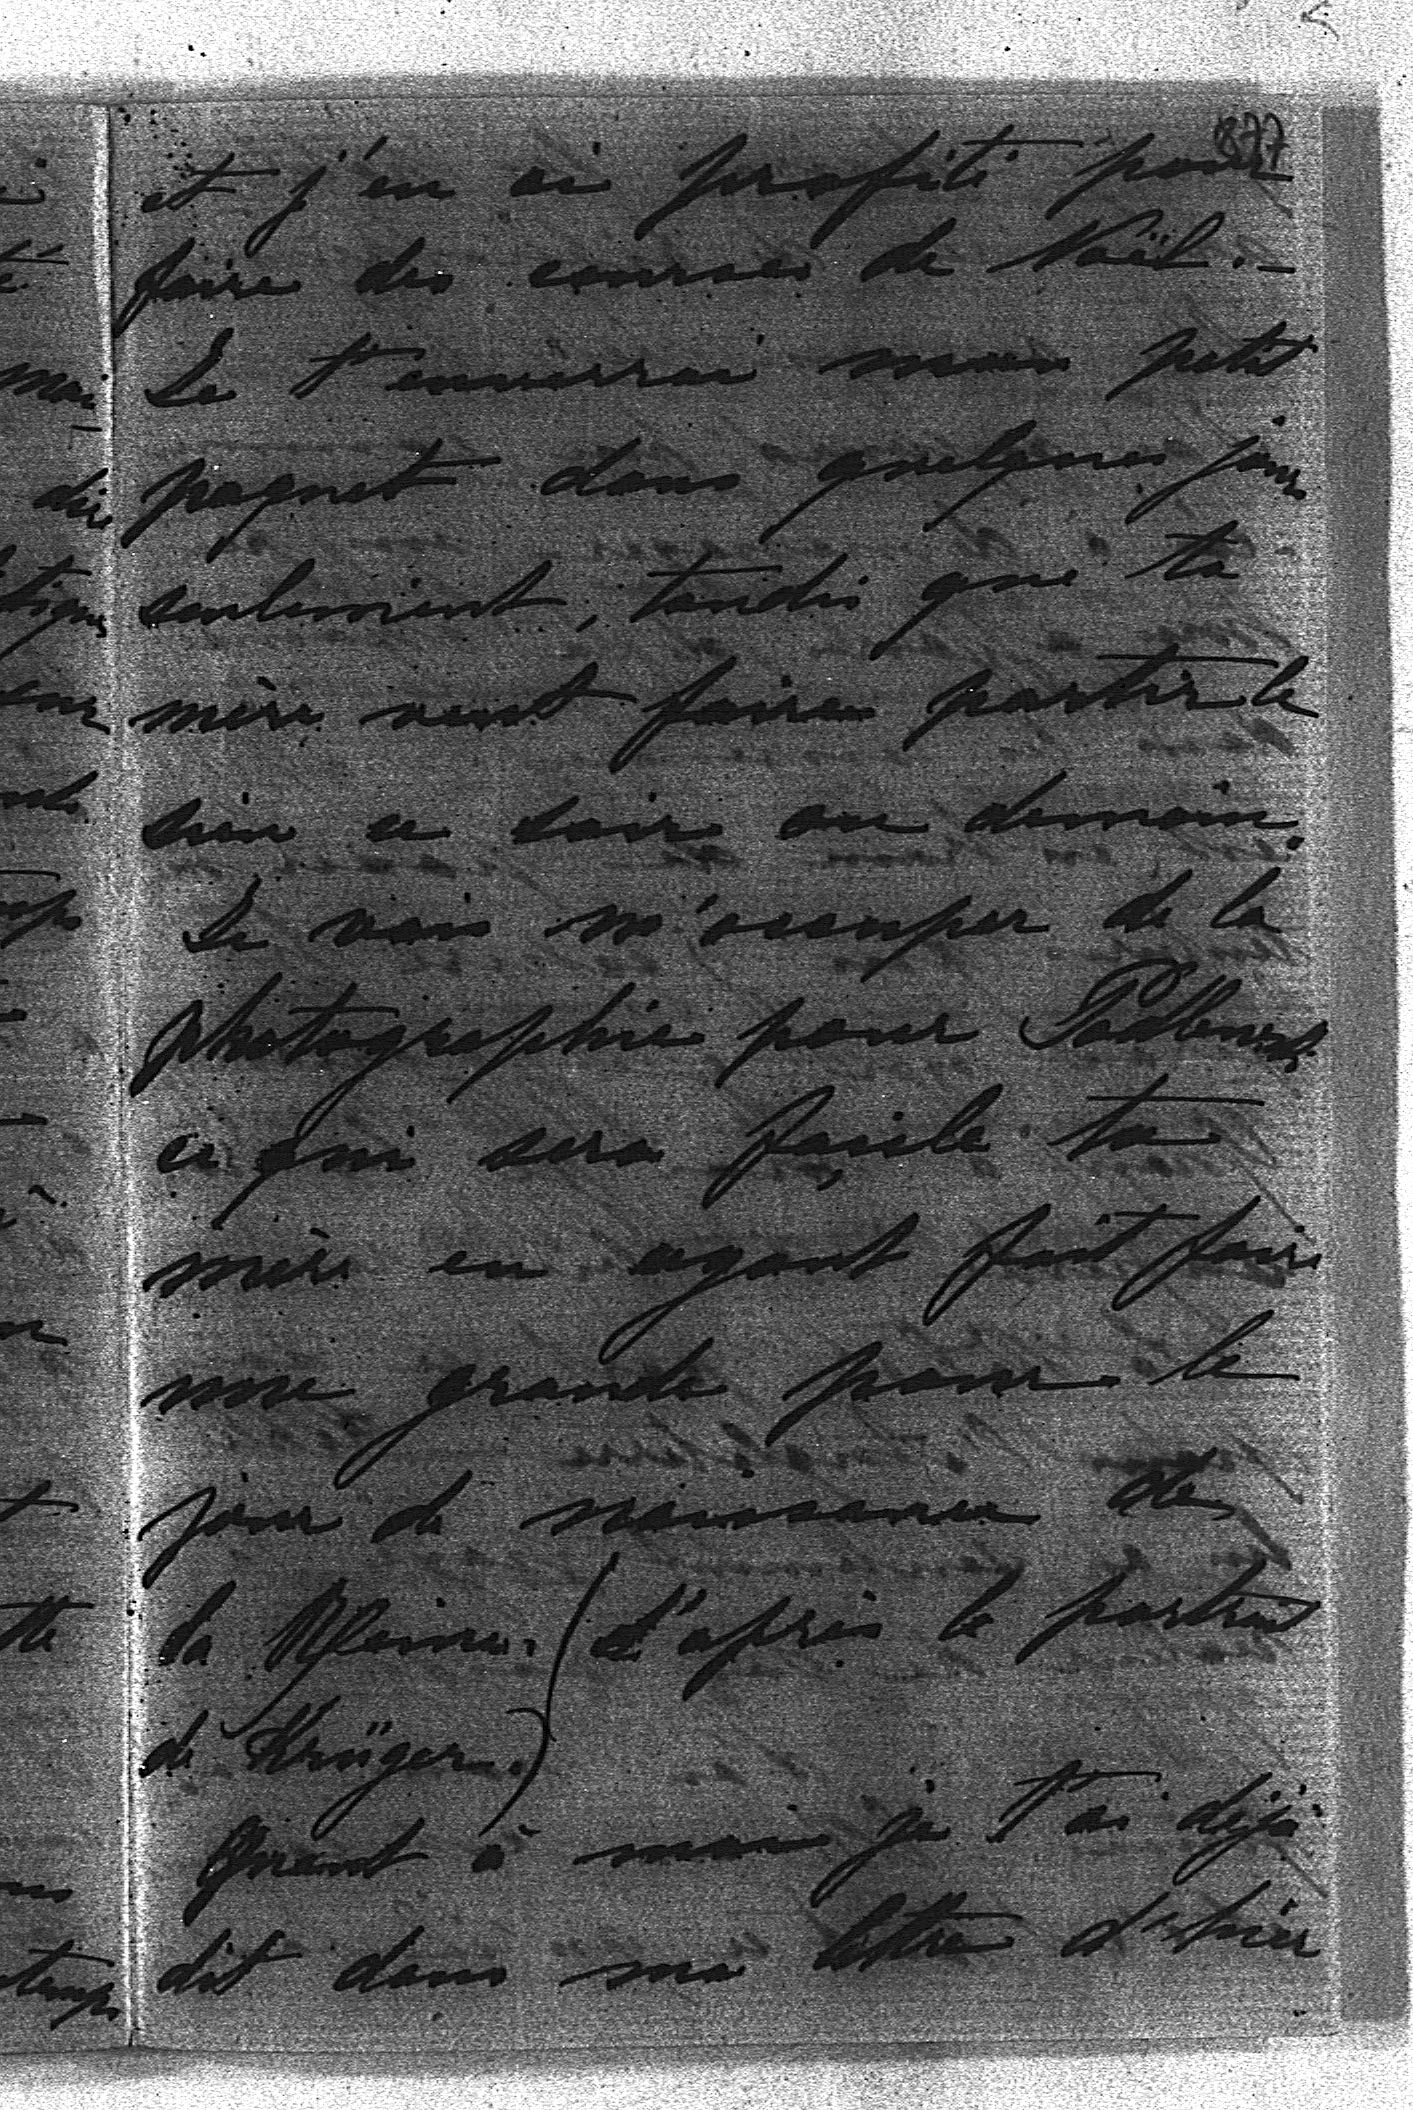 877
et j'en ai profité pour
faire des courses de Noël. –
Je t'enverrai mon petit
paquet dans quelques jours
seulement, tandis que ta
mère veut faire partir le
sien ce soir ou demain.
Je vais m'occuper de la
photographie pour
ce qui sera facile ta
mère en ayant fait faire
une grande pour le
jour de naissance de
la Reine. (d'après le portrait
de Krüger.)
Quant à moi je t'ai déjà
dit dans ma lettre d'hier